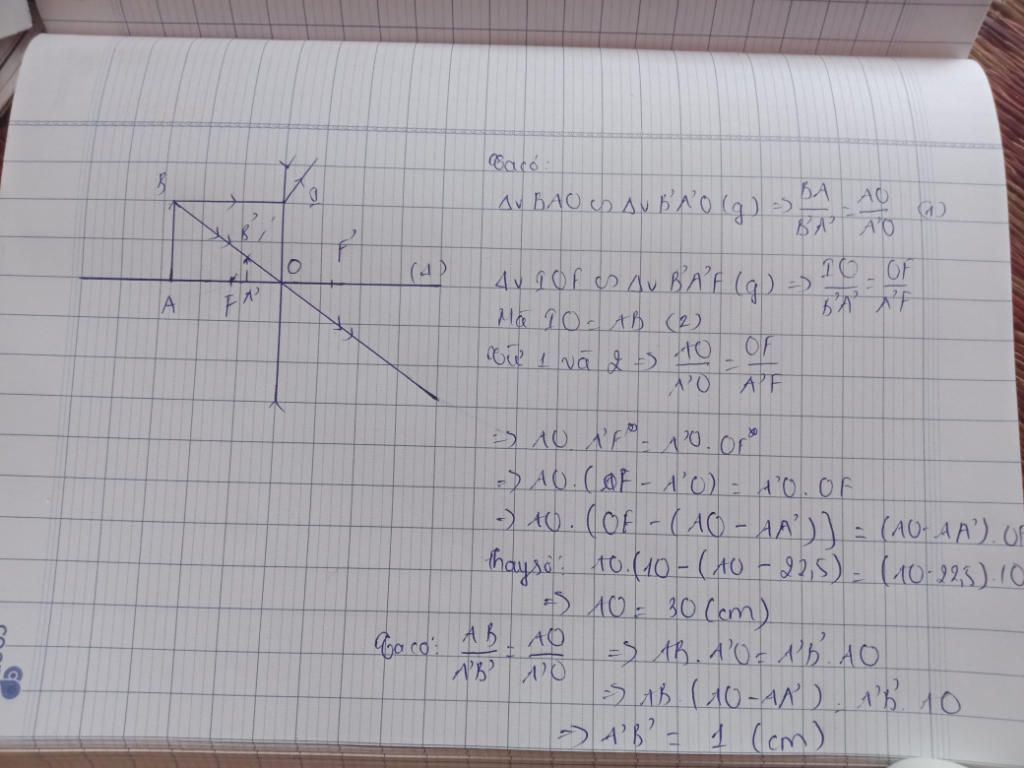 Ta có:
Δv BAO ∽ Δv B'A'O (g) => BA/B'A' = AO/A'O (1)
Δv IOF ∽ Δv B'A'F (g) => IO/B'A' = OF/A'F
Mà IO = AB (2)
Từ 1 và 2 => AO/A'O = OF/A'F
=> AO.A'F = A'O.OF
=> AO.(OF - A'O) = A'O.OF
=> AO.(OF - (AO - AA')] = (AO-AA').OF
Thay số: AO.(10 - (AO - 22,5) = (AO-22,5).10
=> AO = 30 (cm)
Ta có: AB/A'B' = AO/A'O => AB.A'O = A'B'.AO
=> AB.(AO-AA') = A'B'.AO
=> A'B' = 1 (cm)
B
I
B'
O
F'
(Δ)
A
F
A'